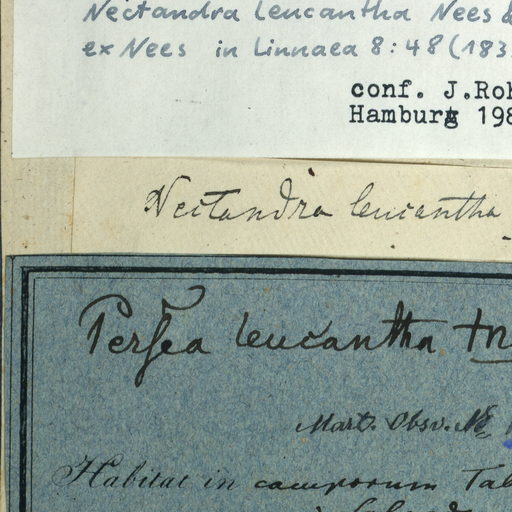 Nectandra leucantha Nees &
ex Nees in Linnaea 8: 48 (183
conf. J.Roh
Hamburg 198
Nectandra leucantha
Persea leucantha
Mart. Obsv.
Habitat in camporum Tab